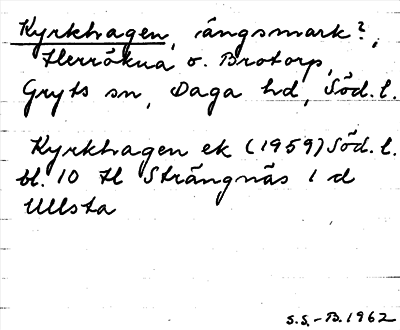 Kyrkhagen, ängsmark?,
Herrökna o. Brotorp,
Gryts sn, Daga hd, Söd.l.
Kyrkhagen ek (1959) Söd.l.
bl. 10 H Strängnäs 1 d
Ullsta
S.S.-B. 1962